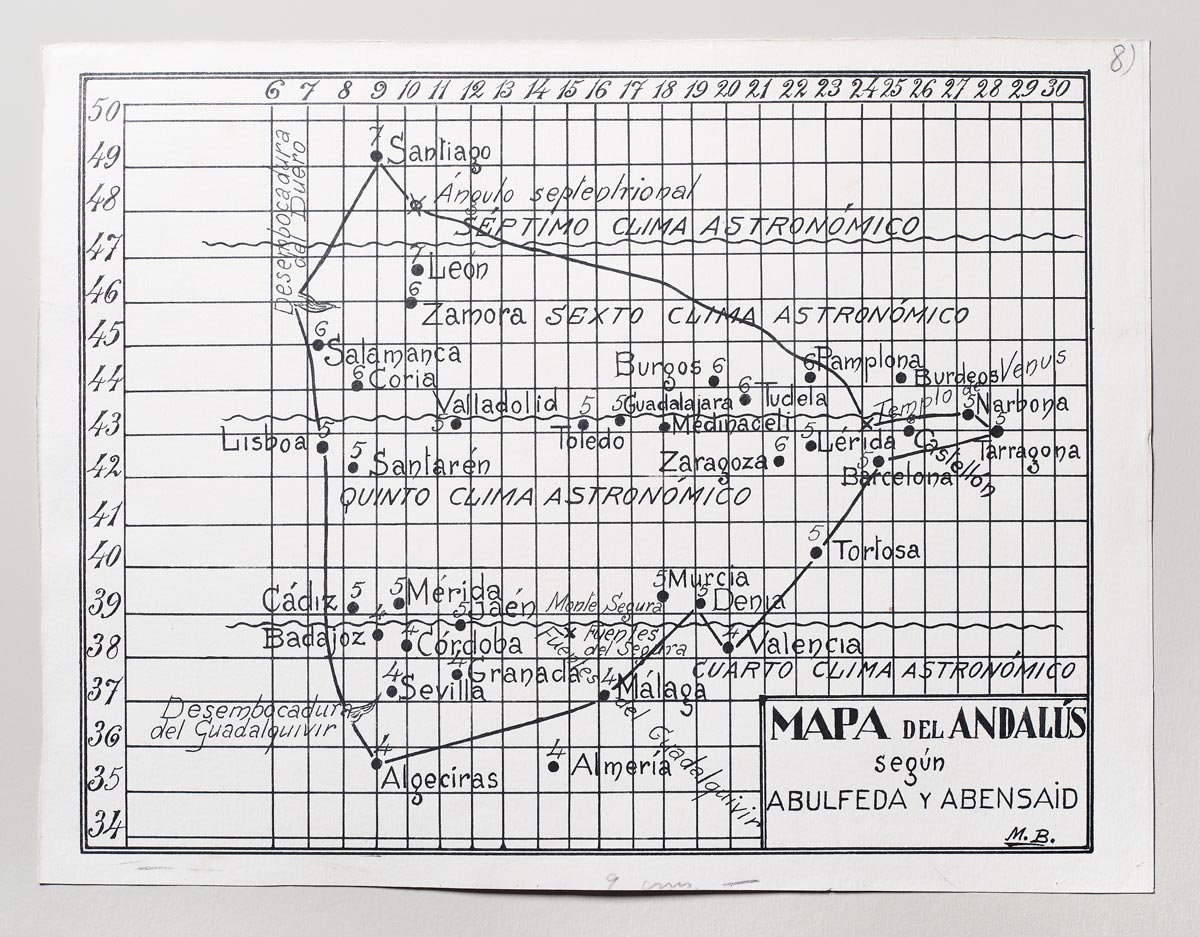 8)
6 7 8 9 10 11 12 13 14 15 16 17 18 19 20 21 22 23 24 25 26 27 28 29 30
50
49
48
47
46
45
44
43
42
41
40
39
38
37
36
35
34
Desembocadura
del Duero
7
Santiago
Ángulo septentrional
SÉPTIMO CLIMA ASTRONÓMICO
7
León
6
Zamora
SEXTO CLIMA ASTRONÓMICO
6
Salamanca
6
Coria
Burgos 6
6
Pamplona
Burdeos
Templo de Venus
Valladolid
5
5
Toledo
5
Guadalajara
Medinaceli
6
Tudela
5
Narbona
Lisboa
5
5
Santarén
Zaragoza
6
5
Lérida
6
Castellón
5
Tarragona
5
Barcelona
QUINTO CLIMA ASTRONÓMICO
5
Tortosa
Cádiz
5
5
Mérida
5
Jaén
Monte Segura
5
Murcia
5
Denia
Badajoz
4
4
Córdoba
Fuentes
del Segura
4
Valencia
4
Sevilla
4
Granada
Fuentes
del Guadalquivir
4
Málaga
CUARTO CLIMA ASTRONÓMICO
Desembocadura
del Guadalquivir
4
Algeciras
4
Almería
MAPA DEL ANDALÚS
según
ABULFEDA Y ABENSAID
M. B.